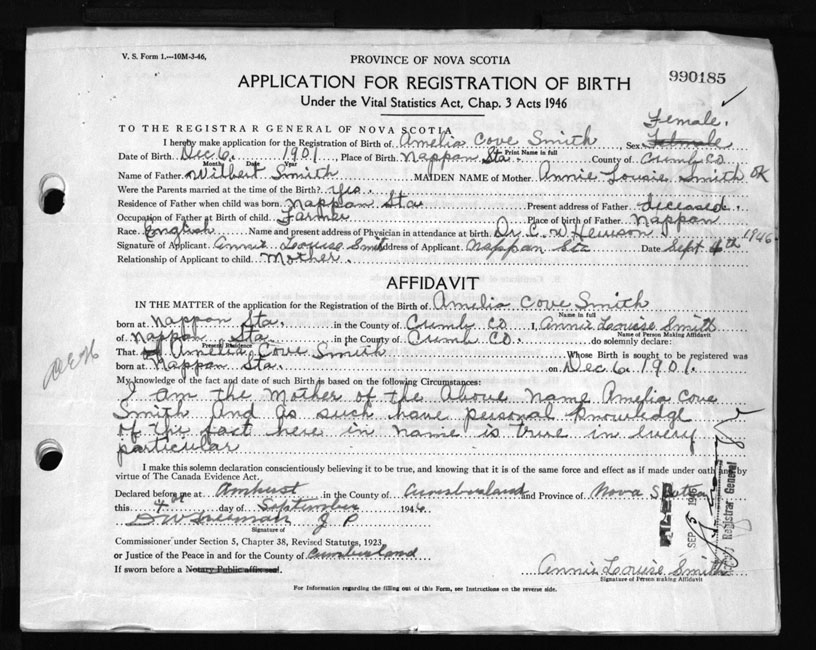 V. S. Form 1.—10M-3-46,
PROVINCE OF NOVA SCOTIA
990185
APPLICATION FOR REGISTRATION OF BIRTH
Under the Vital Statistics Act, Chap. 3 Acts 1946
Female.
TO THE REGISTRAR GENERAL OF NOVA SCOTIA
I hereby make application for the Registration of Birth of Amelia Cove Smith Sex
Print Name in full
Date of Birth Dec 6. 1901 Place of Birth Nappan Sta. County of Cumb Co
Month Year
Name of Father Wilbert Smith MAIDEN NAME of Mother Annie Lousie Smith OK
Were the Parents married at the time of the Birth? Yes.
Residence of Father when child was born Nappan Sta Present address of Father deceased.
Occupation of Father at Birth of child Farmer Place of birth of Father Nappan
Race English Name and present address of Physician in attendance at birth Dr C. W Hewson
Signature of Applicant Annie Louise Smith Address of Applicant Nappan Sta Date Sept 4th 1946
Relationship of Applicant to child Mother.
AFFIDAVIT
IN THE MATTER of the application for the Registration of the Birth of Amelia Cove Smith
Name in full
born at Nappan Sta. in the County of Cumb Co I, Annie Louise Smith
Name of Person Making Affidavit
of Nappan Sta. in the County of Cumb Co. do solemnly declare:
Present Residence
That Amelia Cove Smith Whose Birth is sought to be registered was
born at Nappan Sta. on Dec 6. 1901.
My knowledge of the fact and date of such Birth is based on the following Circumstances:
I am the Mother of the Above Name Amelia Cove
Smith And as such have personal knowledge
of the fact here in name is true in every
particular
I make this solemn declaration conscientiously believing it to be true, and knowing that it is of the same force and effect as if made under oath and by
virtue of The Canada Evidence Act.
Declared before me at Amherst in the County of Cumberland and Province of Nova Scotia
this 4th day of September 1946
J P
Signature of
Commissioner under Section 5, Chapter 38, Revised Statutes, 1923,
or Justice of the Peace in and for the County of Cumberland
If sworn before a Notary Public affix seal.
Annie Louise Smith
Signature of Person making Affidavit
For Information regarding the filling out of this Form, see Instructions on the reverse side.
FILED
SEP 5
Registrar General